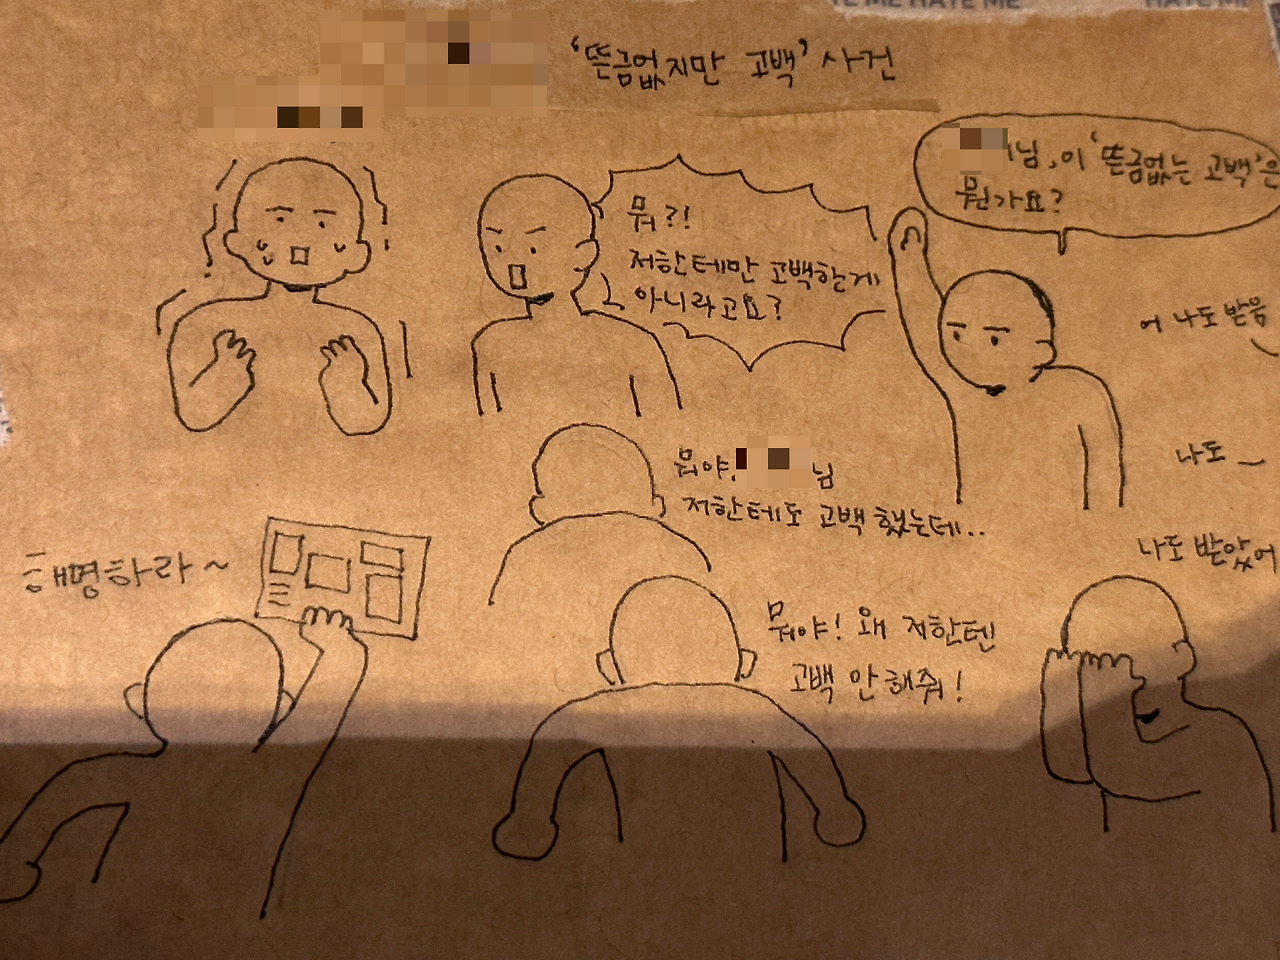 '뜬금없지만 고백' 사건
님, 이 '뜬금없는 고백'은
뭔가요?
뭐?!
저한테만 고백한게
아니라고요?
어 나도 받음
나도
뭐야,
님
저한테도 고백했는데..
나도 받았어
해명하라~
뭐야! 왜 저한텐
고백 안해줘!